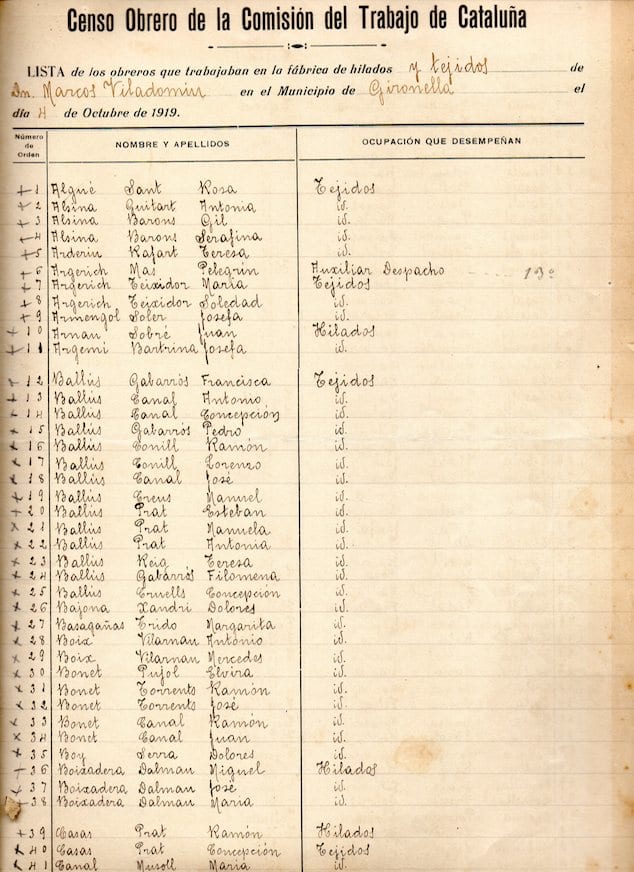 Censo Obrero de la Comisión del Trabajo de Cataluña
LISTA de los obreros que trabajaban en la fábrica de hilados y tejidos de
Dn. Marcos Viladomiu en el Municipio de Gironella el
día 4 de Octubre de 1919.
Número de Orden NOMBRE Y APELLIDOS OCUPACIÓN QUE DESEMPEÑAN
+ 1 Algué Sant Rosa Tejidos
+ 2 Alsina Guitart Antonia id.
+ 3 Alsina Barons Gil id.
+ 4 Alsina Barons Serafina id.
+ 5 Arderiu Rafart Teresa id.
+ 6 Argerich Mas Pelegrin Auxiliar Despacho 13º
+ 7 Argerich Teixidor María Tejidos
+ 8 Argerich Teixidor Soledad id.
+ 9 Armengol Soler Josefa id.
+ 10 Arnau Sobré Juan Hilados
+ 11 Argemi Bartrina Josefa id.
+ 12 Ballús Gabarrós Francisca Tejidos
+ 13 Ballús Canal Antonio id.
+ 14 Ballús Canal Concepción id.
+ 15 Ballús Gabarrós Pedro id.
+ 16 Ballús Conill Ramón id.
+ 17 Ballús Conill Lorenzo id.
+ 18 Ballús Canal José id.
+ 19 Ballús Creus Manuel id.
+ 20 Ballús Prat Esteban id.
+ 21 Ballús Prat Manuela id.
+ 22 Ballús Prat Antonia id.
+ 23 Ballús Reig Teresa id.
+ 24 Ballús Gabarrós Filomena id.
+ 25 Ballús Cruells Concepcion id.
+ 26 Bajona Xandri Dolores id.
+ 27 Basagañas Trido Margarita id.
+ 28 Boix Vilarnau Antonio id.
+ 29 Boix Vilarnau Mercedes id.
+ 30 Bonet Pujol Elvira id.
+ 31 Bonet Torrents Ramón id.
+ 32 Bonet Torrents José id.
+ 33 Bonet Canal Ramón id.
+ 34 Bonet Canal Juan id.
+ 35 Boy Serra Dolores id.
+ 36 Boixadera Dalmau Miguel Hilados
+ 37 Boixadera Dalmau José id.
+ 38 Boixadera Dalmau Maria id.
+ 39 Casas Prat Ramón Hilados
+ 40 Casas Prat Concepción Tejidos
+ 41 Canal Musoll Maria id.